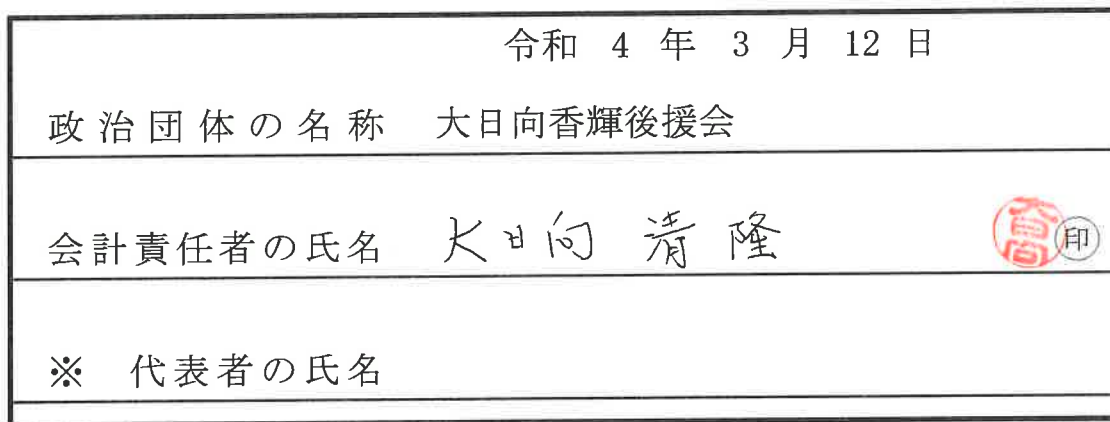 令和 4 年 3 月 12 日
政治団体の名称 大日向香輝後援会
会計責任者の氏名 大日向 清隆 大日向 印
※ 代表者の氏名